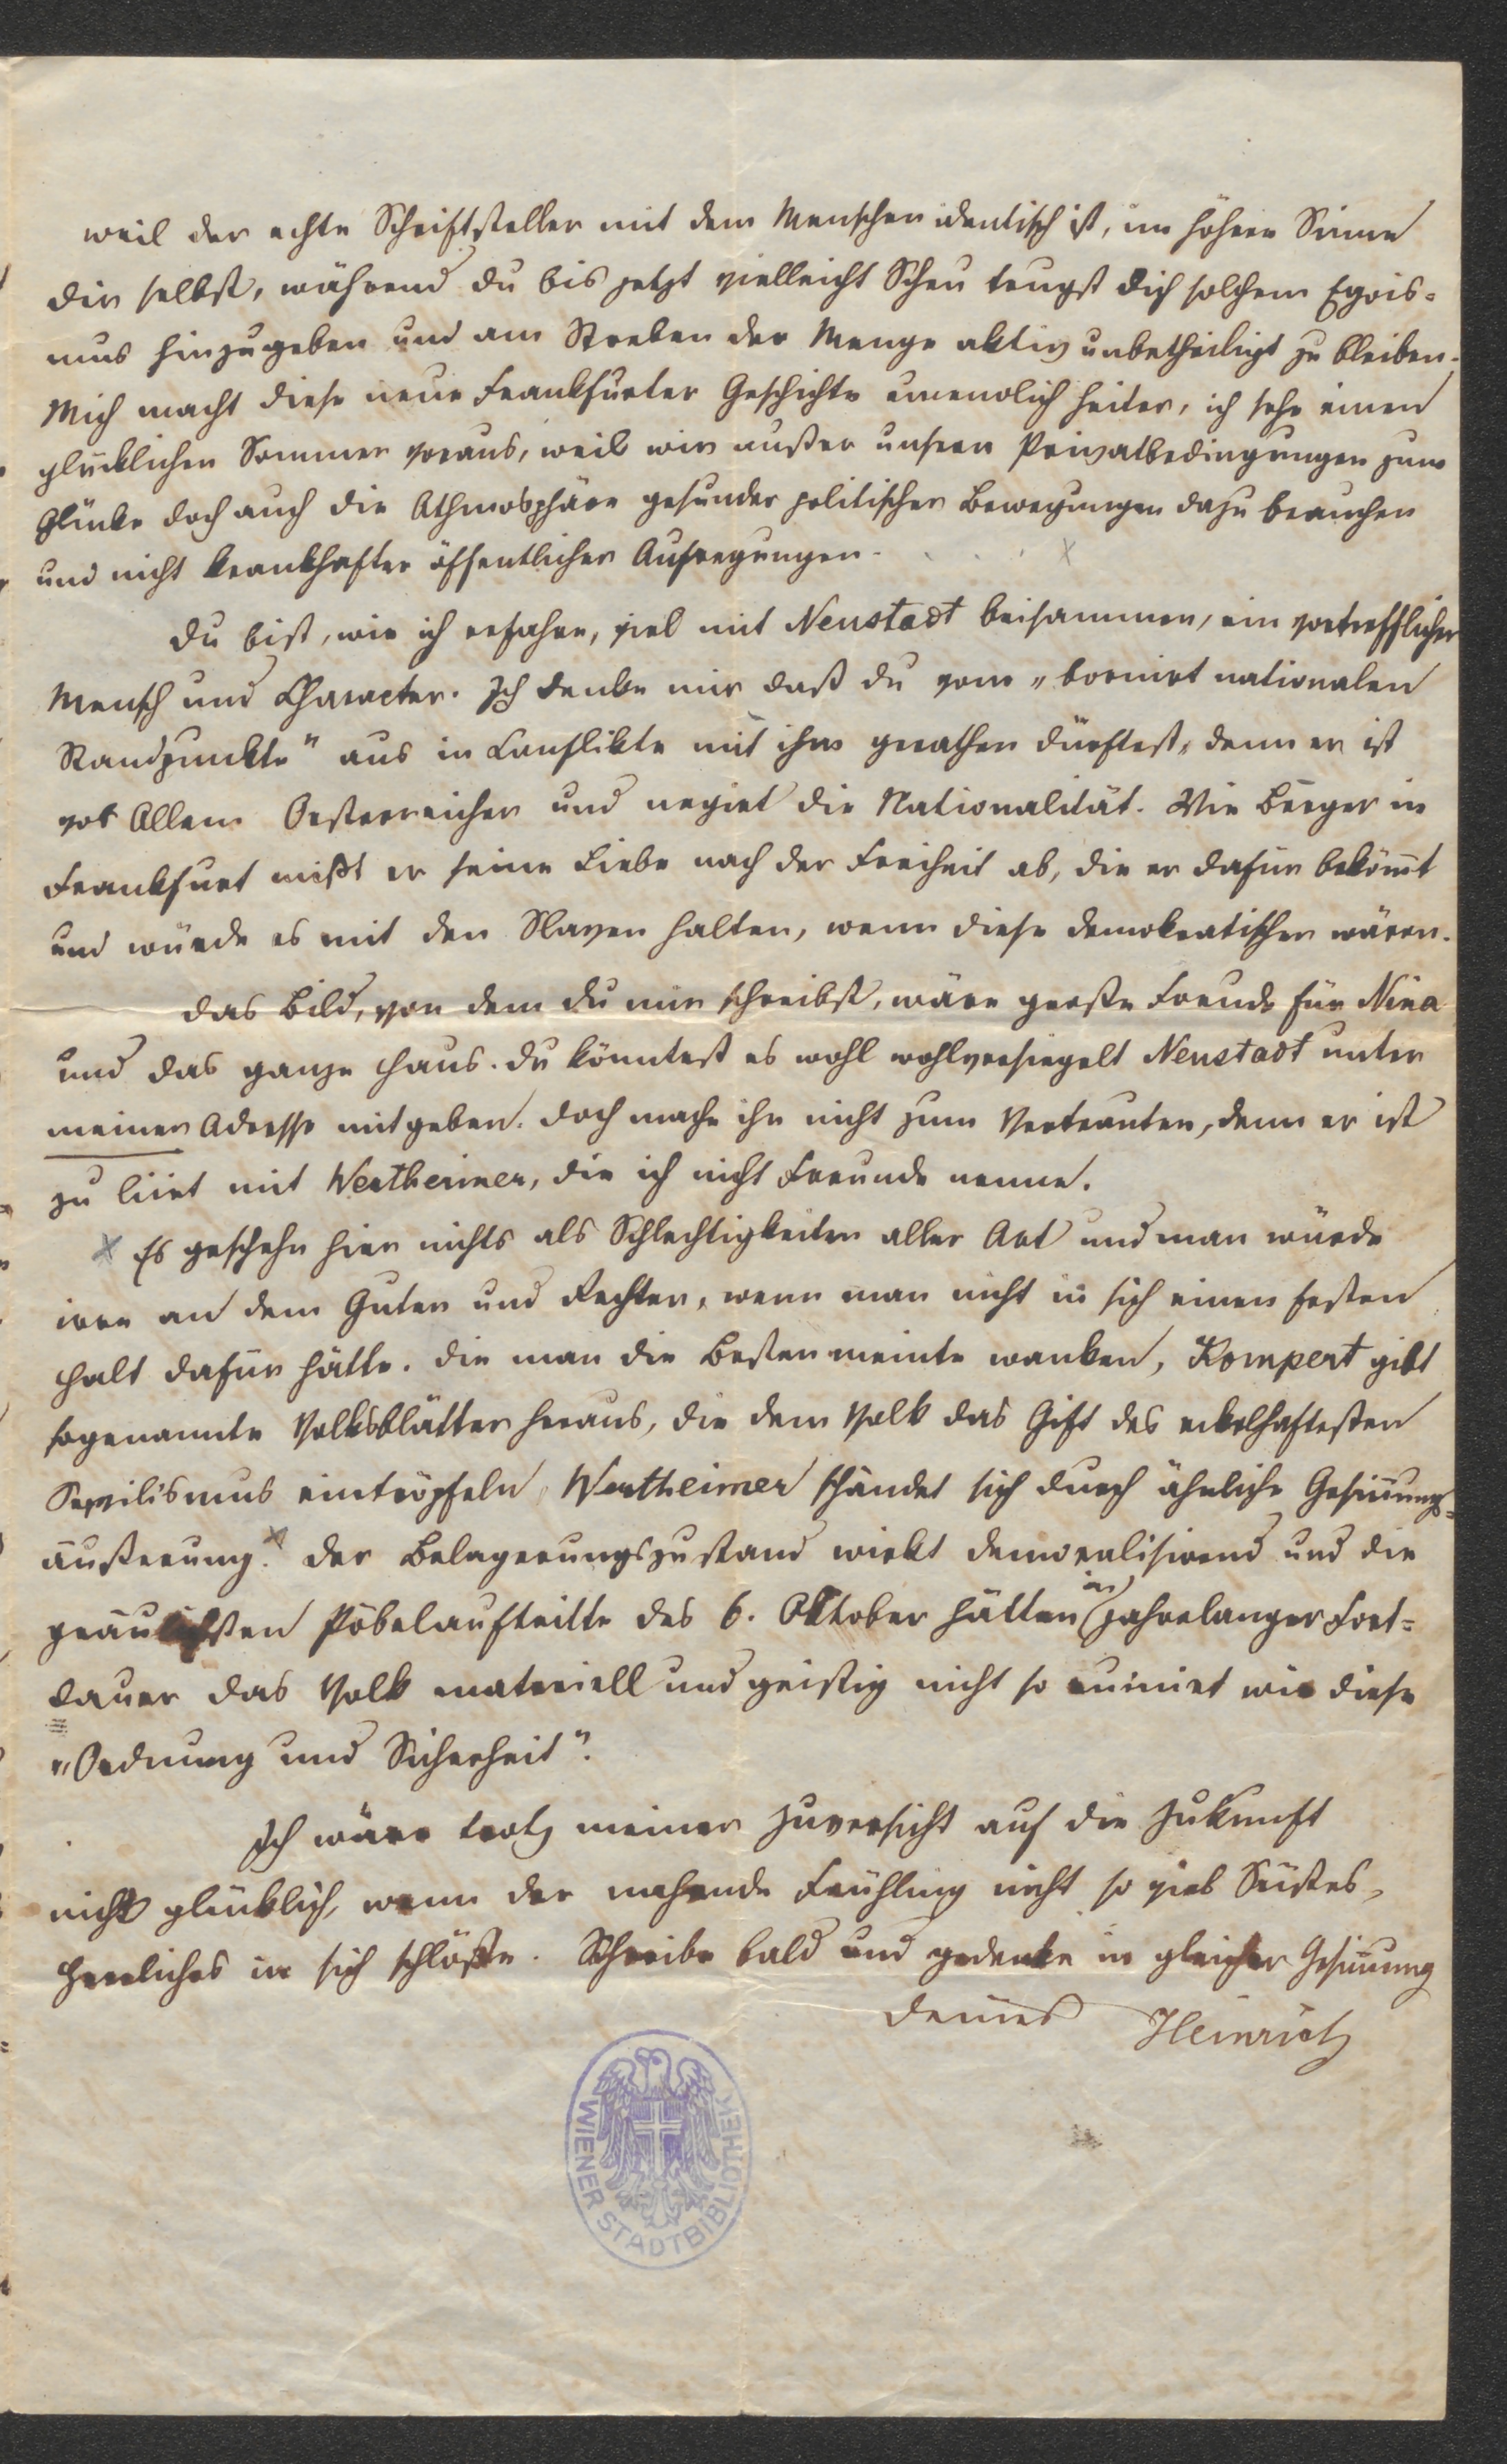 weil der echte Schriftsteller mit dem Menschen identisch ist, im höhern Sinne
dir selbst, während du bis jetzt vielleicht Scheu trugst dich solchem Egois-
mus hinzugeben und am Streben der Menge aktiv unbetheiligt zu bleiben.
Mich macht diese neue Frankfurter Geschichte unendlich heiter, ich sehe einen
glücklichen Sommer voraus, weil wir außer unsern Privatbedingungen zum
Glücke doch auch die Athmosphäre gesunder politischer Bewegungen dazu brauchen
und nicht krankhafter öffentlicher Aufregungen.
Du bist, wie ich erfahre, viel mit Neustadt beisammen, ein vortrefflicher
Mensch und Character. Ich denke mir daß du vom „bornirt nationalen
Standpunkte" aus in Conflikte mit ihm gerathen dürftest, denn er ist
vor Allem Oesterreicher und negirt die Nationalität. Wie Berger in
Frankfurt mißt er seine Liebe nach der Freiheit ab, die er dafür bekömt
und würde es mit den Slaven halten, wenn diese demokratischer wären.
Das Bild, von dem du mir schreibst, wäre große Freude für Nina
und das ganze Haus. Du könntest es wohl wohlversiegelt Neustadt unter
meiner Adresse mitgeben. Doch mache ihn nicht zum Vertrauten, denn er ist
zu liirt mit Wertheimer, die ich nicht Freunde nenne.
x Es geschehn hier nichts als Schlechtigkeiten aller Art und man würde
irre an dem Guten und Rechten, wenn man nicht in sich einen festen
Halt dafür hätte. Die man die Besten meinte wanken, Kompert gibt
sogenannte Volksblätter heraus, die dem Volk das Gift des eckelhaftesten
Servilismus eintröpfeln, Wertheimer schändet sich durch ähnliche Gesinungs-
äußerung. x Der Belagerungszustand wirkt demoralisirend und die
gräulichsten Pöbelauftritte des 6. Oktober hätten in jahrelanger Fort-
dauer das Volk materiell und geistig nicht so ruinirt wie diese
„Ordnung und Sicherheit".
Ich wäre trotz meiner Zuversicht auf die Zukunft
nicht glücklich, wenn der nahende Frühling nicht so viel Süßes,
Herrliches in sich schlöße. Schreibe bald und gedenke in gleicher Gesinung
deines Heinrich
WIENER STADTBIBLIOTHEK